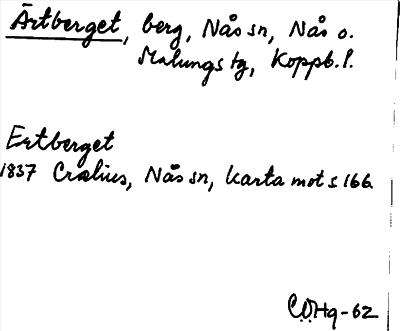 Ärtberget, berg, Nås sn, Nås o.
Malungs tg, Koppb. l.
Ertberget
1837 Crælius, Nås sn, karta mot s 166
CÖHg-62